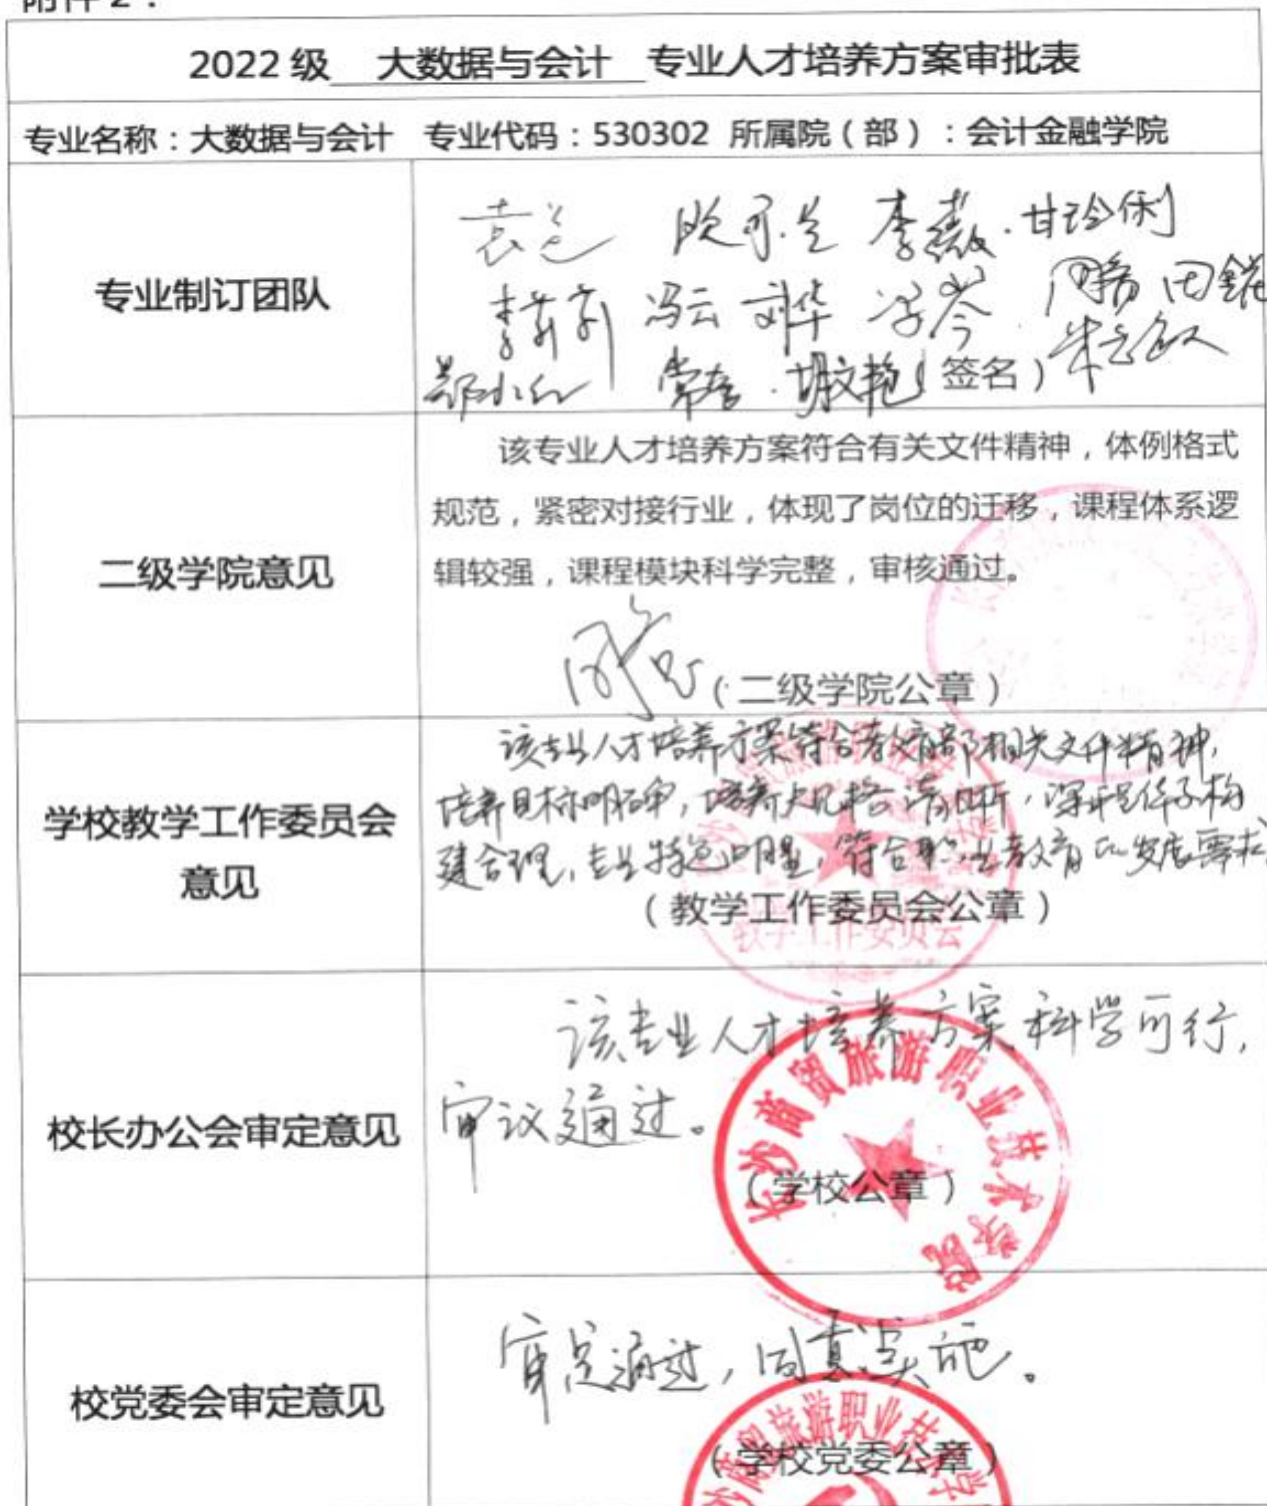 附件2：
2022级 大数据与会计 专业人才培养方案审批表
专业名称：大数据与会计 专业代码：530302 所属院（部）：会计金融学院
专业制订团队
李薇 甘玲俐
冯云 刘华
常杏 胡文艳（签名）
二级学院意见
该专业人才培养方案符合有关文件精神，体例格式
规范，紧密对接行业，体现了岗位的迁移，课程体系逻
辑较强，课程模块科学完整，审核通过。
（二级学院公章）
学校教学工作委员会
意见
该专业人才培养方案符合教育部相关文件精神，
培养目标明确，培养规格清晰，课程体系构
建合理，专业特色明显，符合职业教育的发展需求
（教学工作委员会公章）
教学工作委员会
校长办公会审定意见
该专业人才培养方案科学可行，
审议通过。
（学校公章）
长沙商贸旅游职业技术学院
校党委会审定意见
审定通过，同意实施。
（学校党委公章）
商贸旅游职业技术学